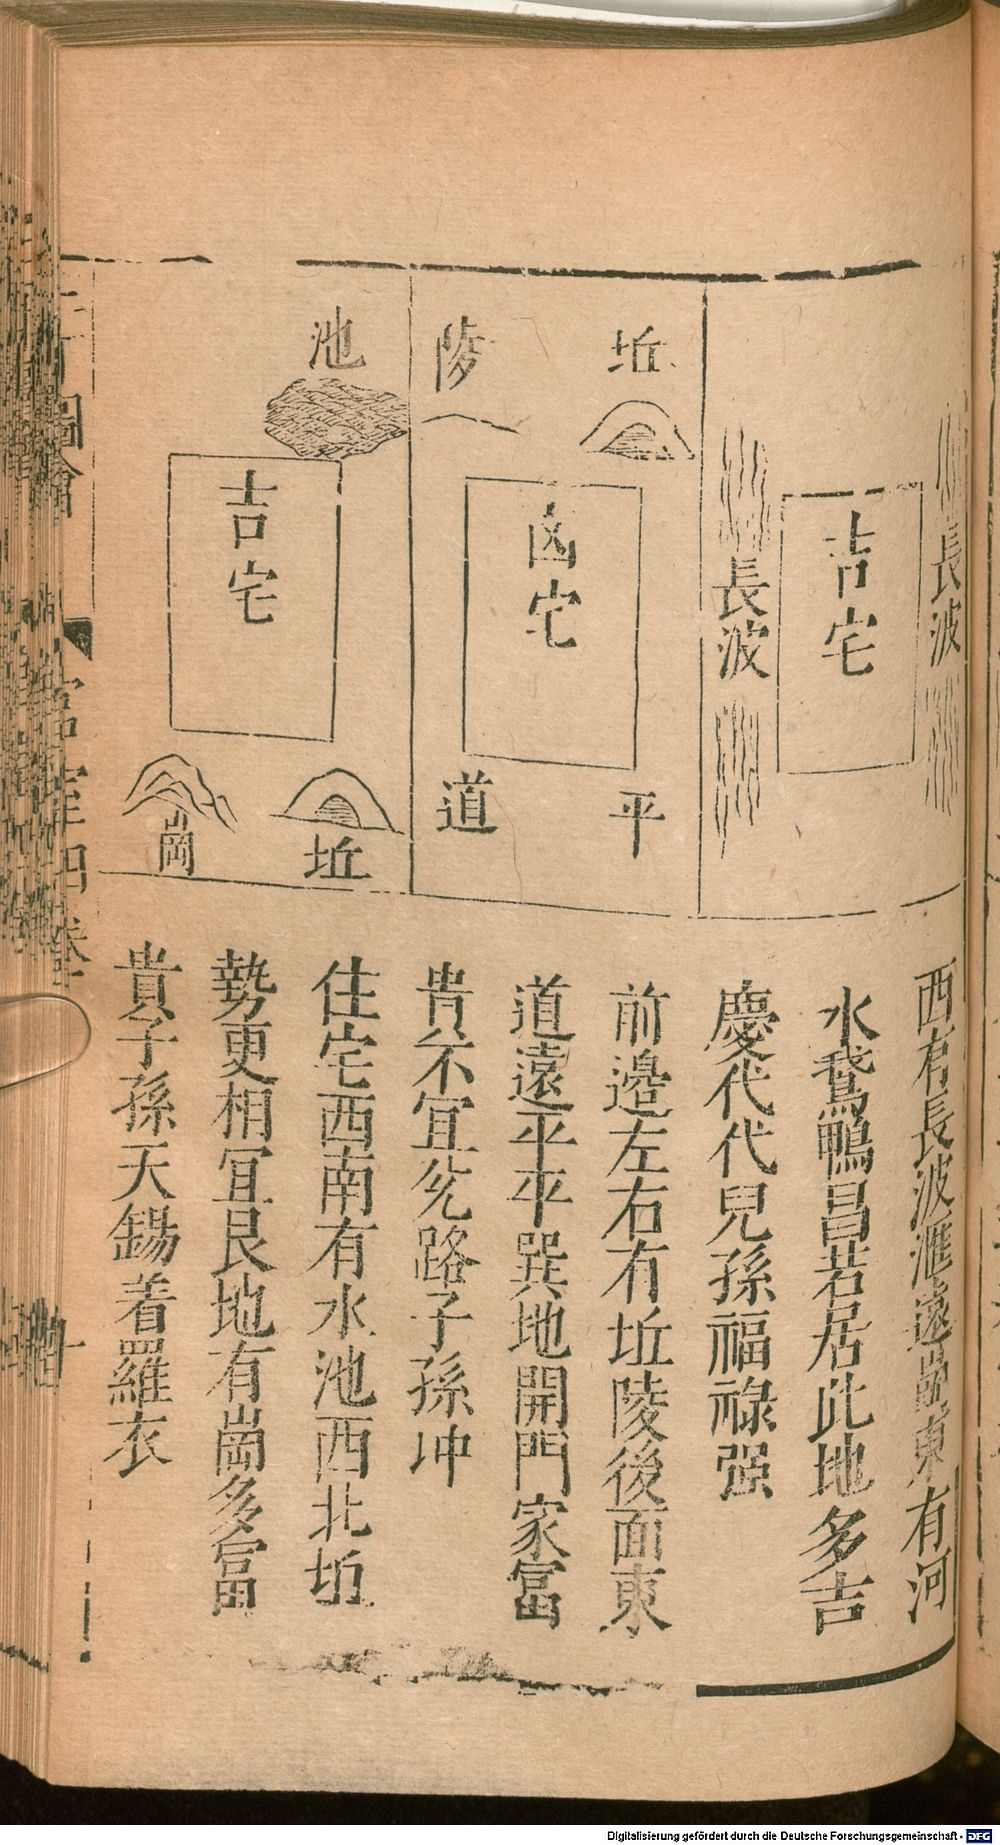 長波
吉宅
長波
坵
陵
凶宅
平
道
池
吉宅
坵
崗
西有長波滙遠崗東有河
水鵞鴨昌若居此地多吉
慶代代兒孫福祿强
前邊左右有坵陵後面東
道遠平平巽地開門家冨
貴不宜兊路子孫冲
住宅西南有水池西北坵
勢更相冝艮地有崗多冨
貴子孫天錫着羅衣
圖會
宮室四卷
Digitalisierung gefördert durch die Deutsche Forschungsgemeinschaft - DFG